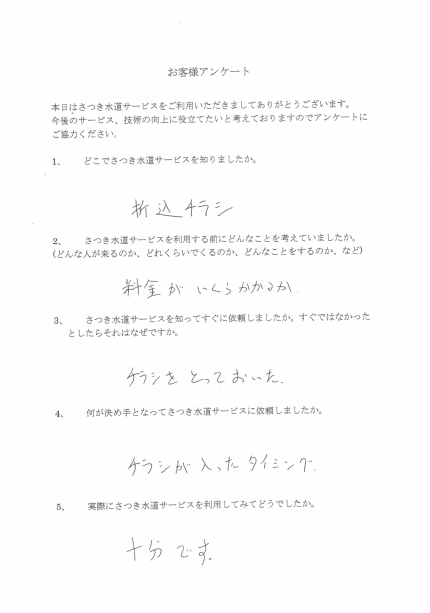 お客様アンケート
本日はさつき水道サービスをご利用いただきましてありがとうございます。
今後のサービス、技術の向上に役立てたいと考えておりますのでアンケートに
ご協力ください。
1、 どこでさつき水道サービスを知りましたか。
折込チラシ
2、 さつき水道サービスを利用する前にどんなことを考えていましたか。
(どんな人が来るのか、どれくらいでくるのか、どんなことをするのか、など)
料金がいくらかかるか.
3、 さつき水道サービスを知ってすぐに依頼しましたか。すぐではなかった
としたらそれはなぜですか。
チラシをとっておいた.
4、 何が決め手となってさつき水道サービスに依頼しましたか。
チラシが入ったタイミング.
5、 実際にさつき水道サービスを利用してみてどうでしたか。
十分です.